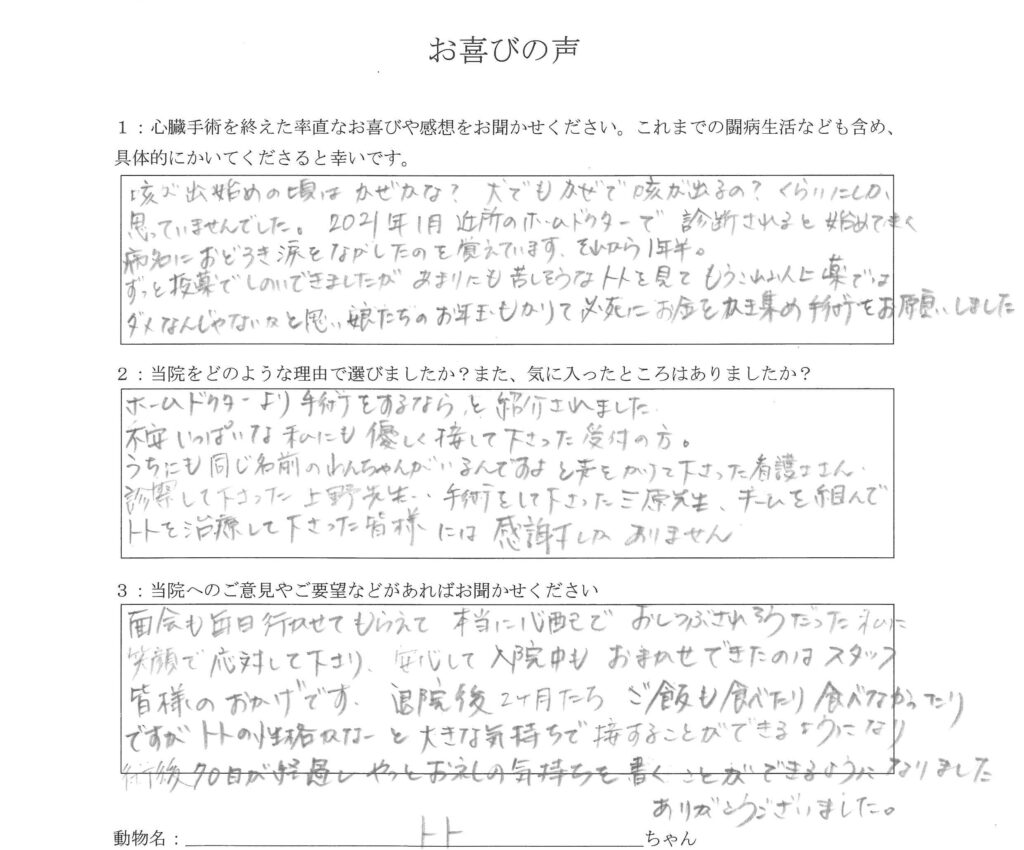 お喜びの声
１：心臓手術を終えた率直なお喜びや感想をお聞かせください。これまでの闘病生活なども含め、
具体的にかいてくださると幸いです。
咳が出始めの頃は かぜかな？ 犬でもかぜで咳が出るの？くらいにしか
思っていませんでした。2021年1月 近所のホームドクターで 診断されると 始めてきく
病名におどろき涙をながしたのを覚えています、それから1年半。
ずっと投薬でしのいできましたが あまりにも苦しそうなトトを見て もうこれ以上 薬では
ダメなんじゃないかと思い 娘たちのお年玉もかりて必死にお金をかき集め手術をお願いしました
２：当院をどのような理由で選びましたか？また、気に入ったところはありましたか？
ホームドクターより 手術をするなら、と 紹介されました.
不安いっぱいな私にも優しく接して下さった受付の方。
うちにも同じ名前のわんちゃんがいるんですよ と声をかけて下さった看護士さん.
診察して下さった上野先生、手術をして下さった三原先生、チームを組んで
トトを治療して下さった皆様には 感謝しか ありません
３：当院へのご意見やご要望などがあればお聞かせください
面会も毎日行かせてもらえて 本当に心配で おしつぶされそうだった私に
笑顔で応対して下さり、安心して入院中も おまかせできたのはスタッフ
皆様のおかげです. 退院後2ヶ月たち ご飯も食べたり食べなかったり
ですが トトの性格かなーと大きな気持ちで接することができるようになり
術後70日が経過し やっとお礼の気持ちを書くことができるようになりました
ありがとうございました。
動物名：トト ちゃん